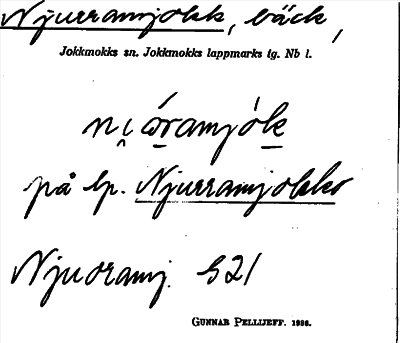 Njurramjokk, bäck,
Jokkmokks sn. Jokkmokks lappmarks tg. Nb l.
ni̯ω̱ramjóḵ
på lp. Njurramjokko
Njuoramj. S21
GUNNAR PELLIJEFF. 1936.